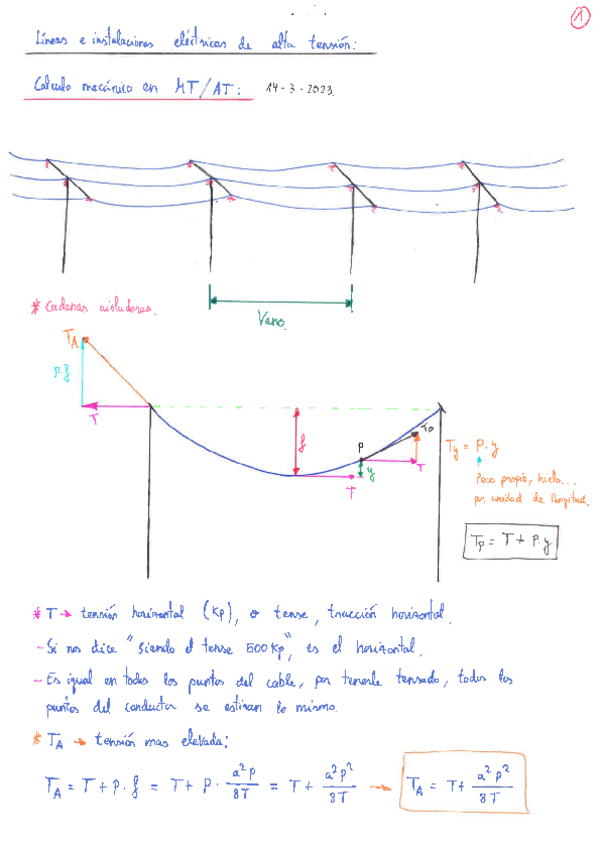 1
Líneas e instalaciones eléctricas de alta tensión:
Calculo mecánico en MT/AT: 14-3-2023.
* Cadenas aisladoras.
Vano.
T_A
P.f
T
f
P
T_P
y
T
T
T_y = P.y
Peso propio, hielo...
por unidad de longitud.
T_P = T + P.y
* T → tensión horizontal (Kp), o tense, tracción horizontal.
- Si nos dice "siendo el tense 500 Kp", es el horizontal.
- Es igual en todos los puntos del cable, por tenerle tensado, todos los
puntos del conductor se estiran lo mismo.
* T_A → tensión mas elevada:
T_A = T + P.f = T + P · a²p/8T = T + a²p²/8T → T_A = T + a²p²/8T